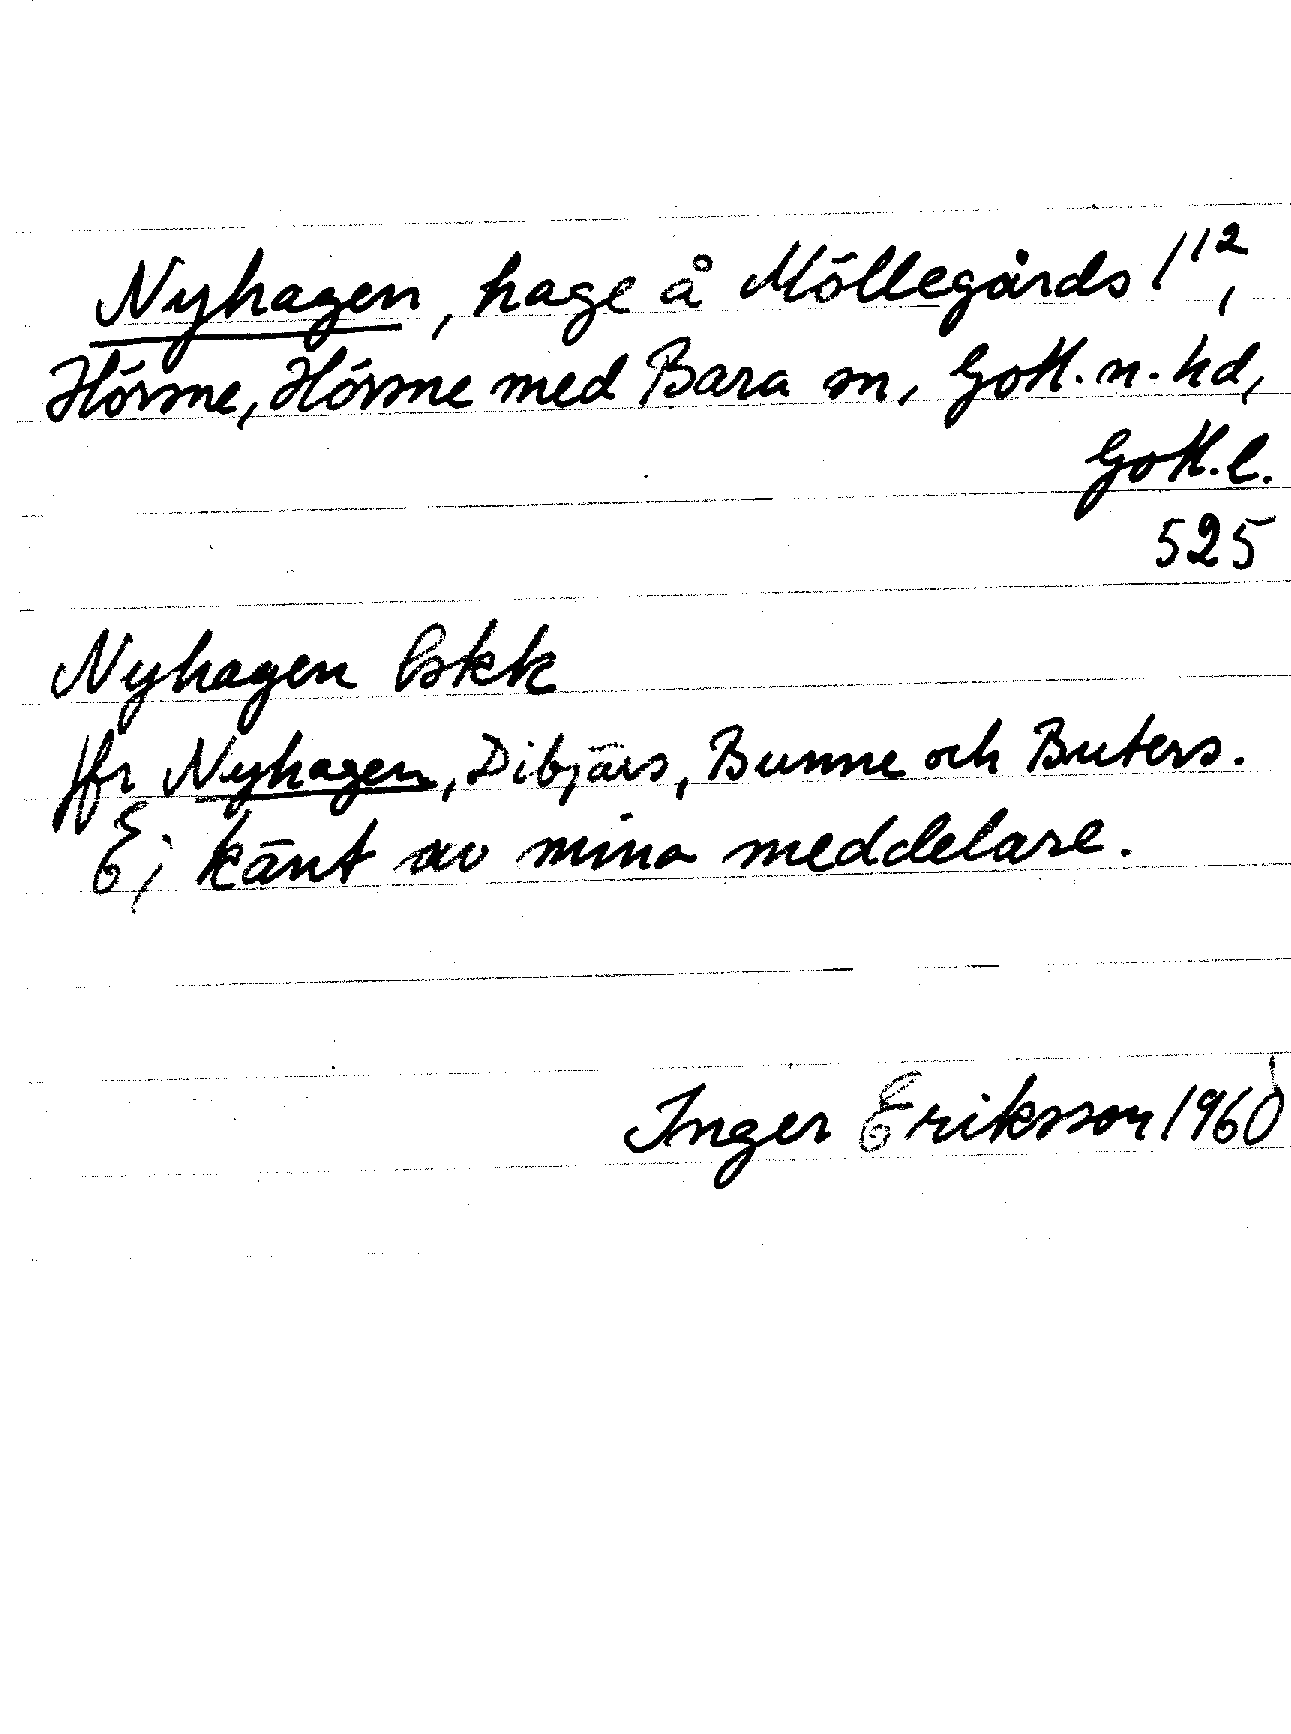 Nyhagen, hage å Möllegårds 1¹²,
Hörsne, Hörsne med Bara sn, Gotl. n. hd,
Gotl. l.
525
Nyhagen Eskk
Jfr Nyhagen, Dibjärs, Bunne och Buters.
Ej känt av mina meddelare.
Inger Eriksson 1960